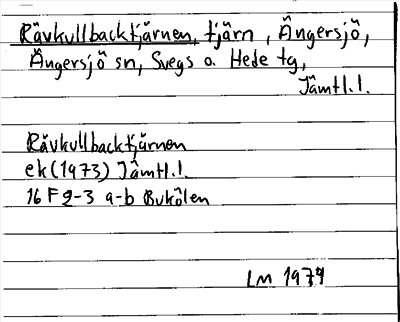 Rävkullbacktjärnen, tjärn, Ängersjö,
Ängersjö sn, Svegs o. Hede tg,
Jämtl.l.
Rävkullbacktjärnen
ek (1973) Jämtl.l.
16 F 2-3 a-b Bukölen
LM 1974